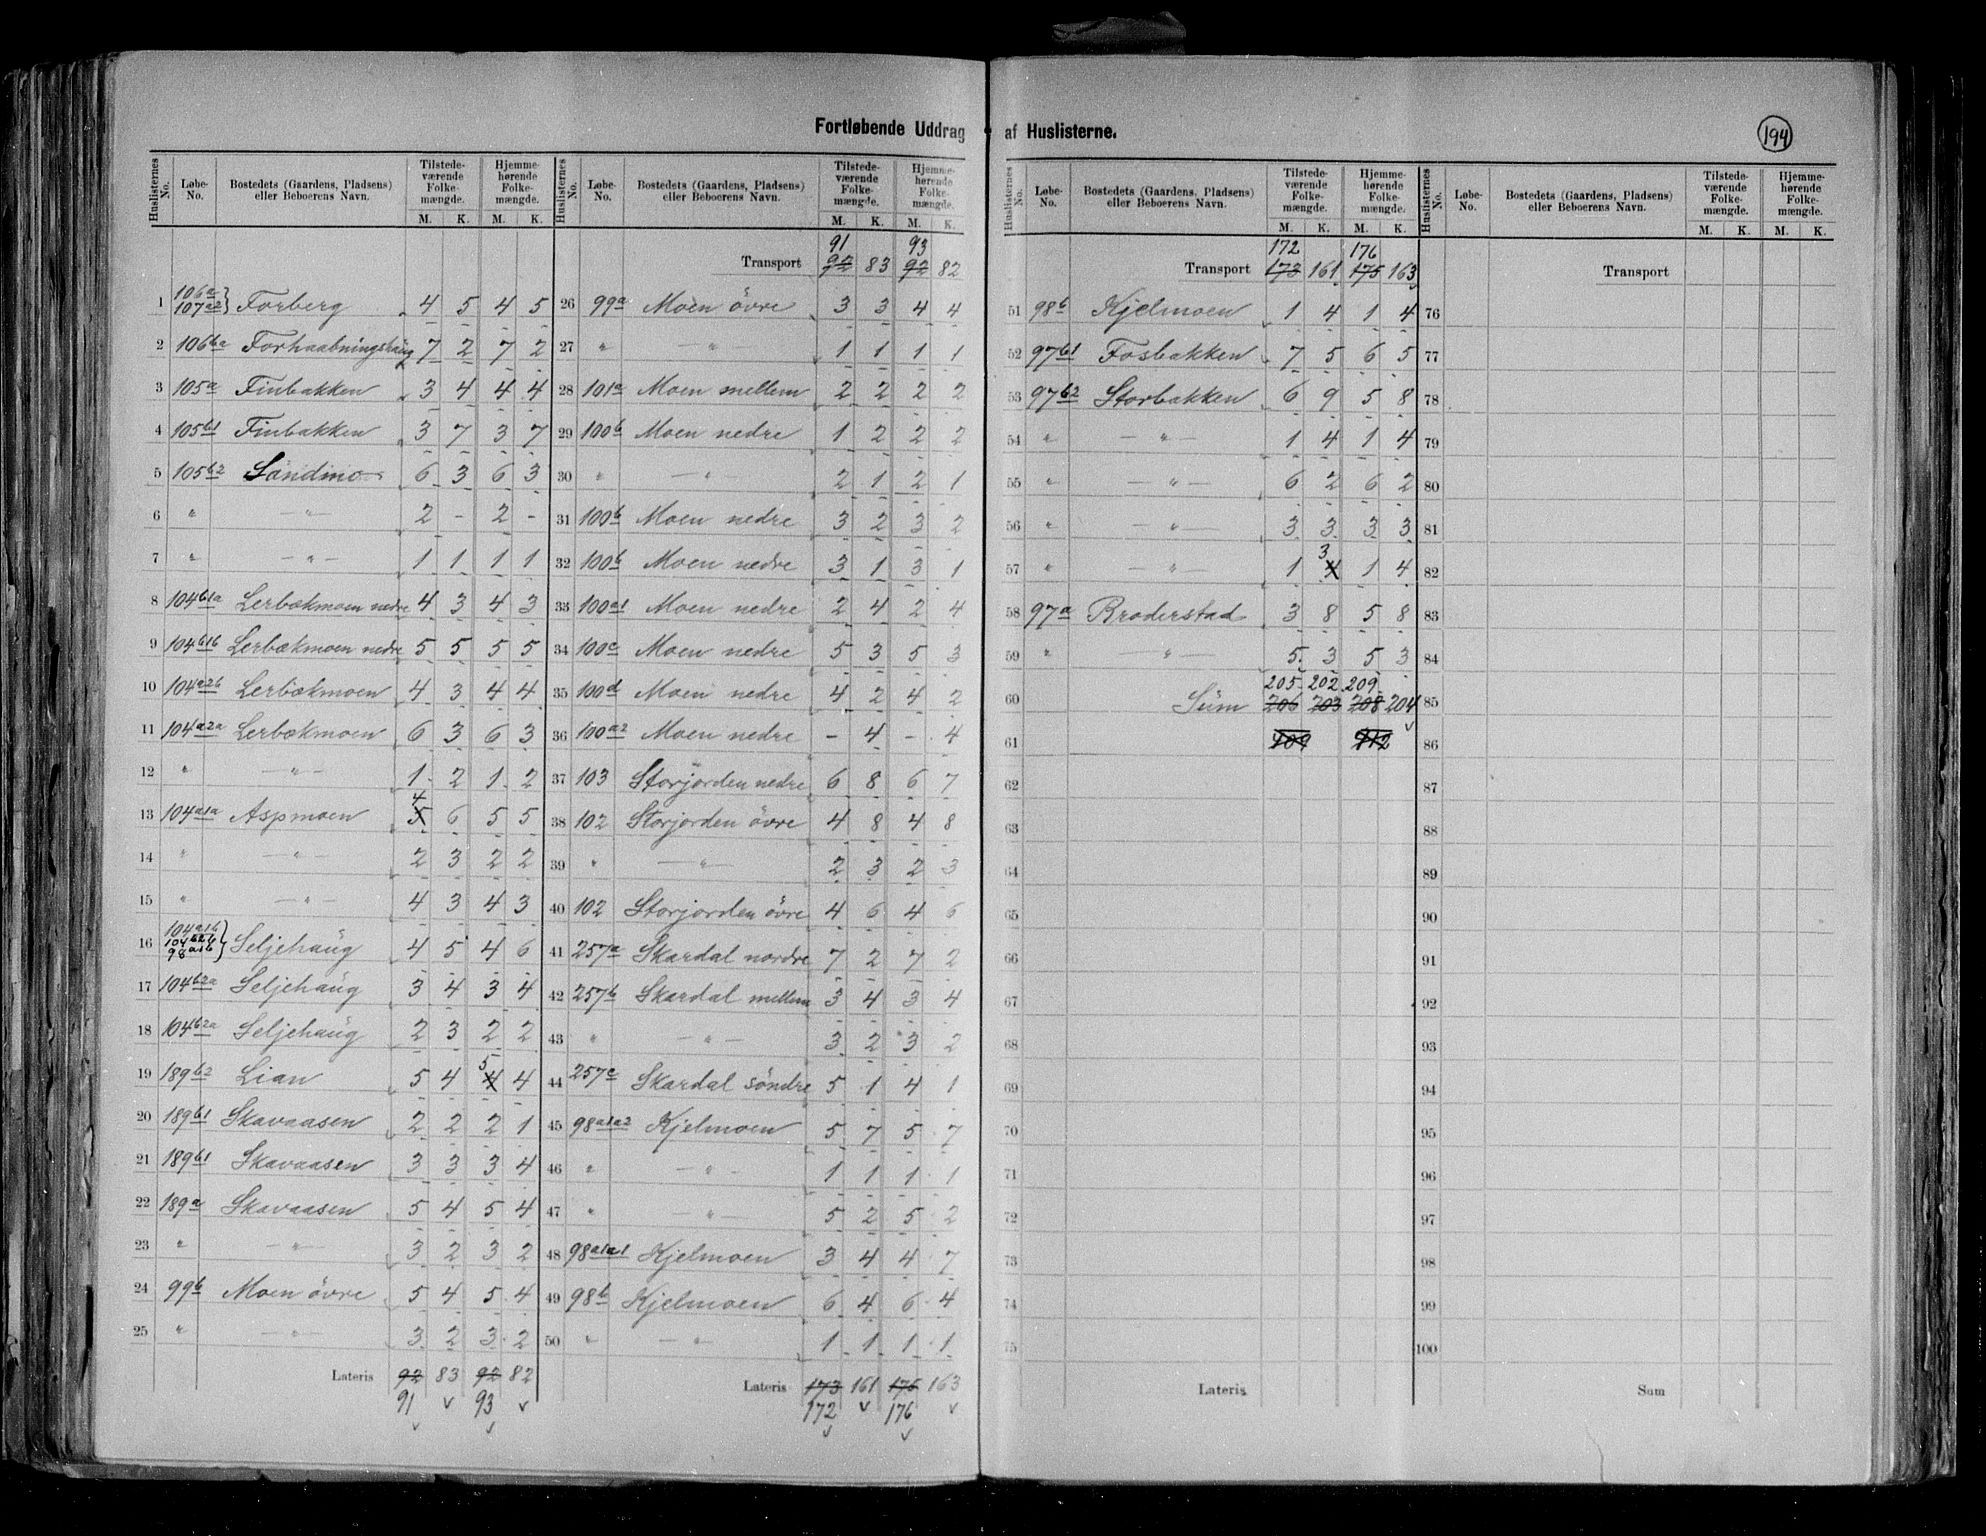 Fortløbende Uddrag af Huslisterne.
194
Huslisternes No. | Løbe-No. | Bostedets (Gaardens, Pladsens) eller Beboerens Navn. | Tilstedeværende Folkemængde. M. K. | Hjemmehørende Folkemængde. M. K.
1 106a 107a2 } Forberg 4 5 4 5
2 106ba Forhaabningshaug 7 2 7 2
3 105a Finbakken 3 4 4 4
4 105b1 Finbakken 3 7 3 7
5 105b2 Sandmo 6 3 6 3
6 " — " — 2 - 2 -
7 " — " — 1 1 1 1
8 104b1a Lerbækmoen nedre 4 3 4 3
9 104b1b Lerbækmoen nedre 5 5 5 5
10 104a2b Lerbækmoen 4 3 4 4
11 104a2a Lerbækmoen 6 3 6 3
12 " — " — 1 2 1 2
13 104a1a Aspmoen 5 4 6 5 5
14 " — " — 2 3 2 2
15 " — " — 4 3 4 3
16 104a1b 104b2b 98a1b } Seljehaug 4 5 4 6
17 104b2a Seljehaug 3 4 3 4
18 104b2a Seljehaug 2 3 2 2
19 189b2 Lian 5 4 4 5 4
20 189b1 Skavaasen 2 2 2 1
21 189b1 Skavaasen 3 3 3 4
22 189a Skavaasen 5 4 5 4
23 " — " — 3 2 3 2
24 99b Moen övre 5 4 5 4
25 " — " — 3 2 3 2
Lateris 92 83 92 82
91 93
Huslisternes No. | Løbe-No. | Bostedets (Gaardens, Pladsens) eller Beboerens Navn. | Tilstedeværende Folkemængde. M. K. | Hjemmehørende Folkemængde. M. K.
91 93
Transport 92 83 92 82
26 99a Moen övre 3 3 4 4
27 " — " — 1 1 1 1
28 101a Moen mellem 2 2 2 2
29 100b Moen nedre 1 2 2 2
30 " — " 2 1 2 1
31 100b Moen nedre 3 2 3 2
32 100b Moen nedre 3 1 3 1
33 100a1 Moen nedre 2 4 2 4
34 100c Moen nedre 5 3 5 3
35 100d Moen nedre 4 2 4 2
36 100a2 Moen nedre - 4 - 4
37 103 Storjorden nedre 6 8 6 7
38 102 Storjorden övre 4 8 4 8
39 " — " — 2 3 2 3
40 102 Storjorden övre 4 6 4 6
41 257a Skardal nordre 7 2 7 2
42 257b Skardal mellem 3 4 3 4
43 " — " — 3 2 3 2
44 257c Skardal søndre 5 1 4 1
45 98a1a2 Kjelmoen 5 7 5 7
46 " — " — 1 1 1 1
47 " " — 5 2 5 2
48 98a1a1 Kjelmoen 3 4 4 7
49 98b Kjelmoen 6 4 6 4
50 " — " — 1 1 1 1
Lateris 173 161 175 163
172 176
Huslisternes No. | Løbe-No. | Bostedets (Gaardens, Pladsens) eller Beboerens Navn. | Tilstedeværende Folkemængde. M. K. | Hjemmehørende Folkemængde. M. K.
172 176
Transport 173 161 175 163
51 98b Kjelmoen 1 4 1 4
52 97b1 Fosbakken 7 5 6 5
53 97b2 Storbakken 6 9 5 8
54 " — " — 1 4 1 4
55 " — " — 6 2 6 2
56 " — " — 3 3 3 3
57 " — " — 1 4 3 1 4
58 97a Broderstad 3 8 5 8
59 " — " — 5 3 5 3
205 202 209
60 Sum 206 203 208 204
61 409 412
62
63
64
65
66
67
68
69
70
71
72
73
74
75
Lateris
Huslisternes No. | Løbe-No. | Bostedets (Gaardens, Pladsens) eller Beboerens Navn. | Tilstedeværende Folkemængde. M. K. | Hjemmehørende Folkemængde. M. K.
Transport
76
77
78
79
80
81
82
83
84
85
86
87
88
89
90
91
92
93
94
95
96
97
98
99
100
Sum